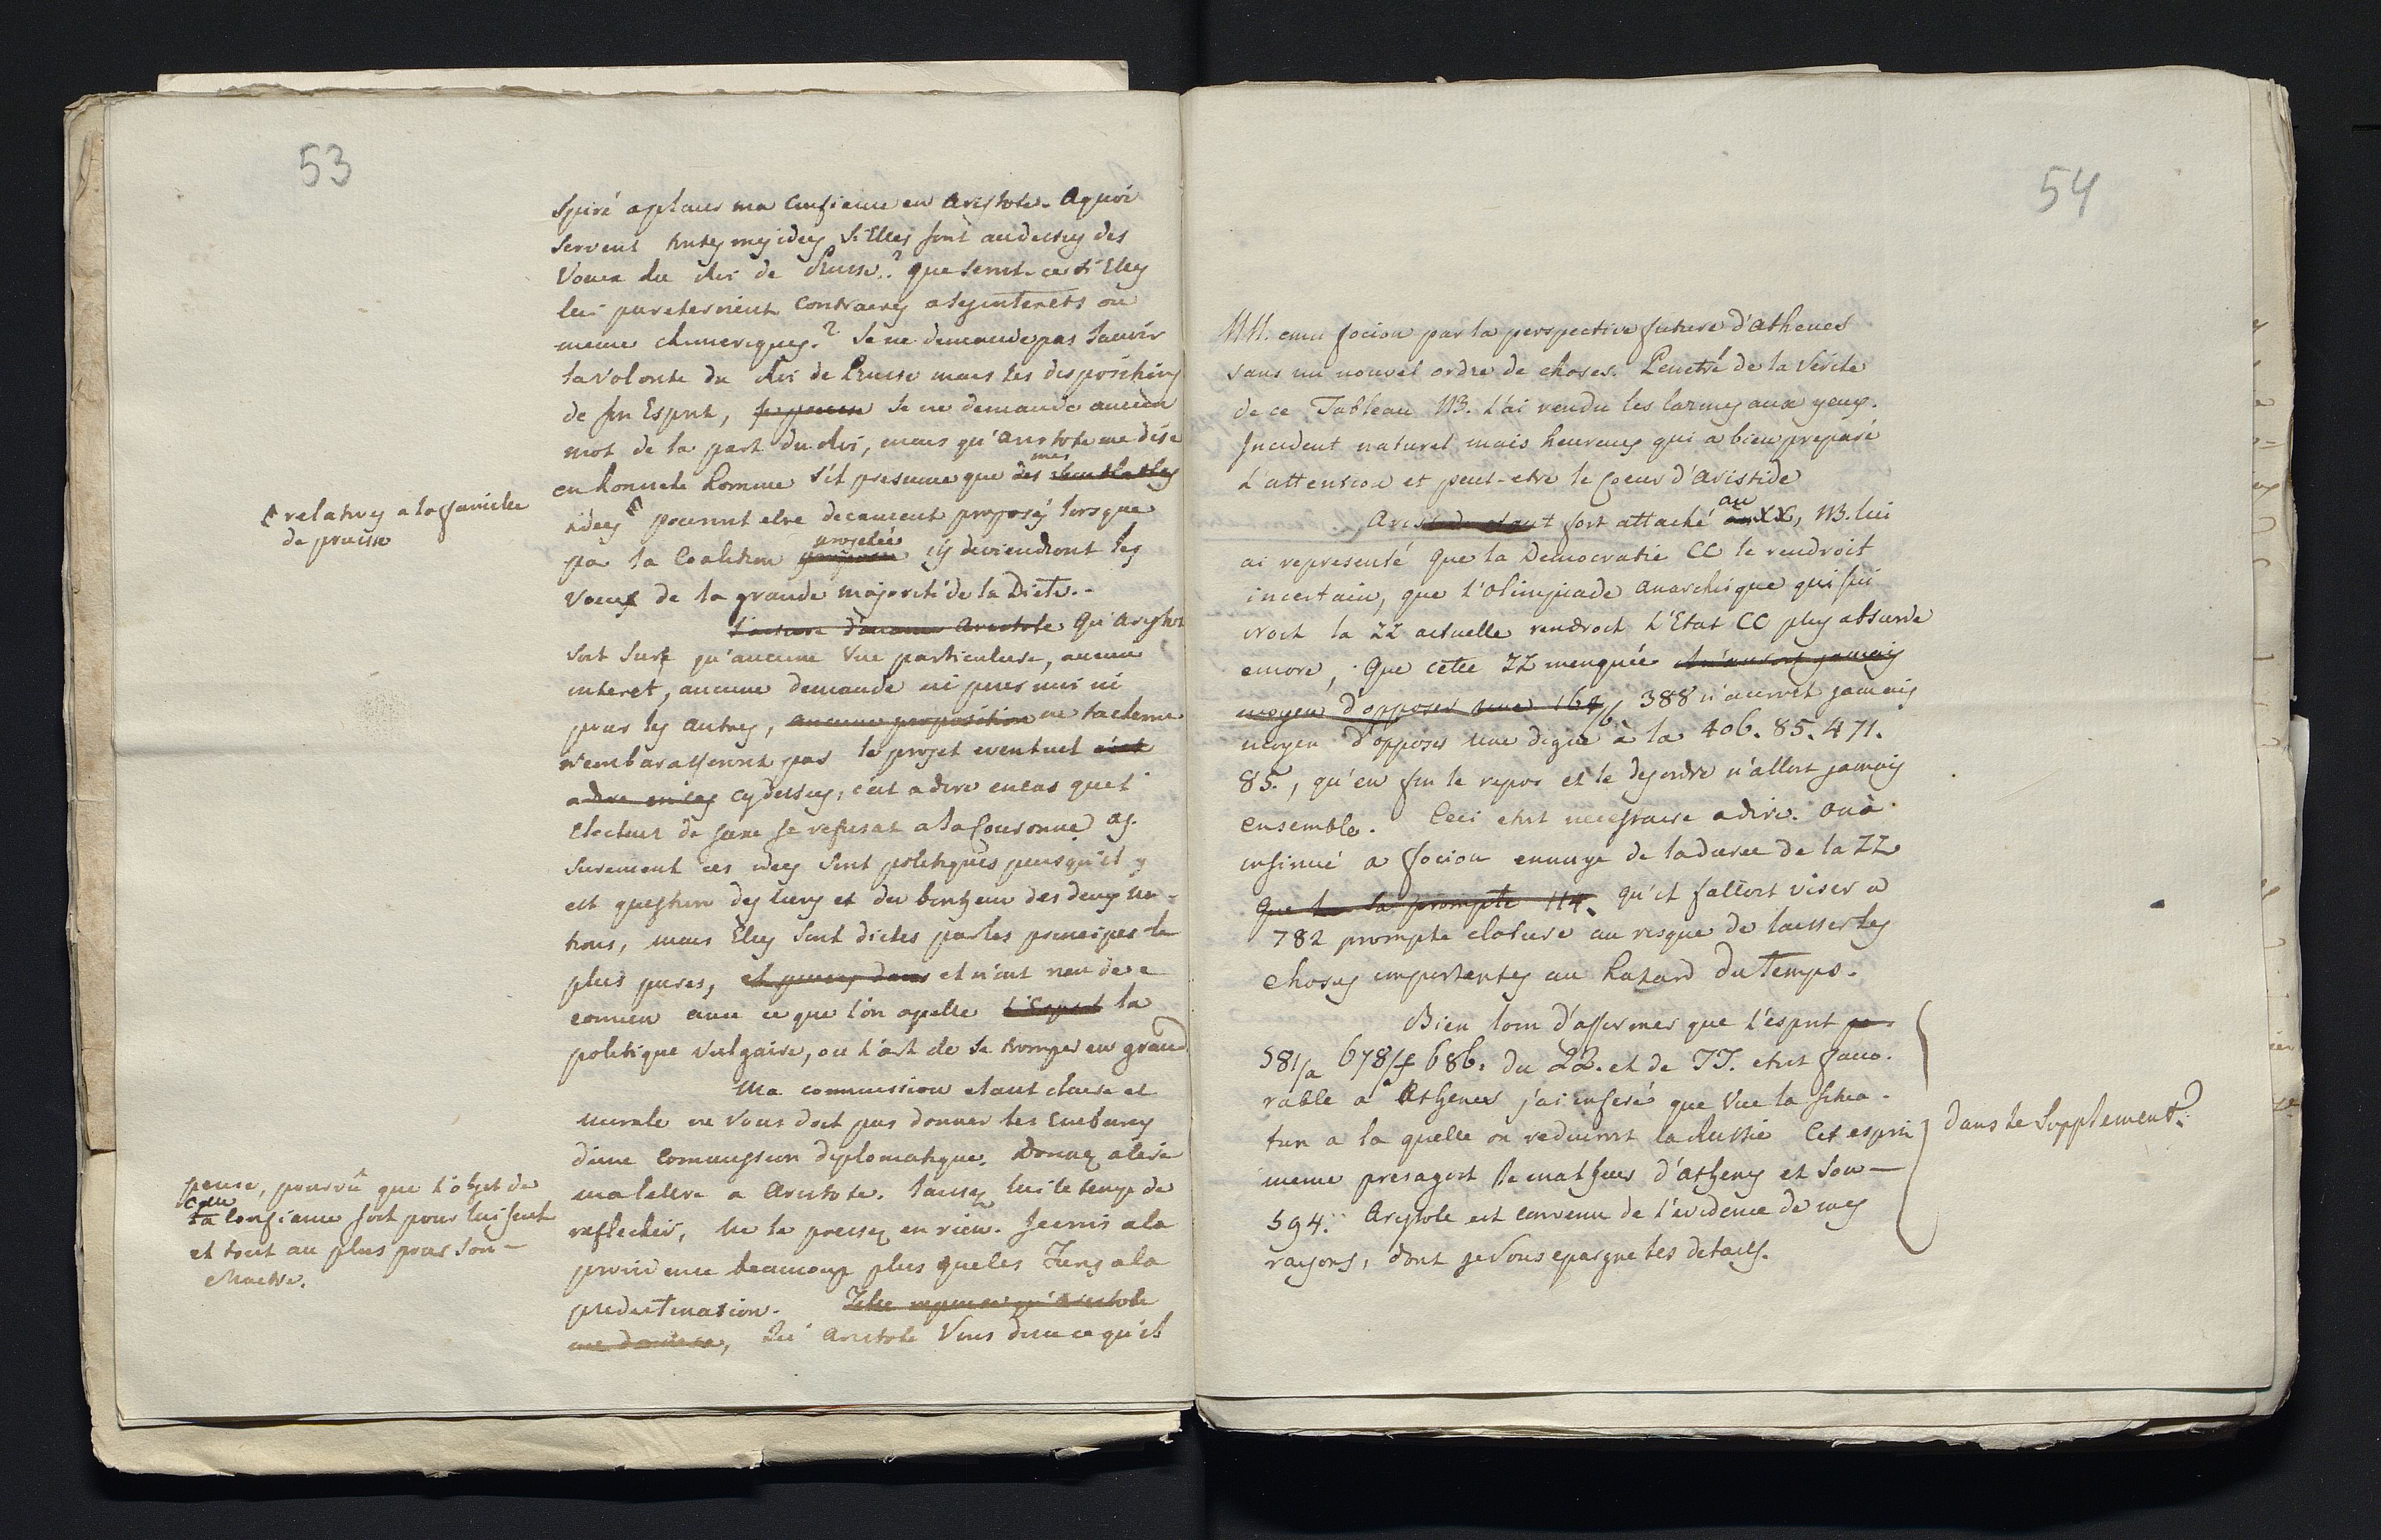 53
spiré a placer ma confiance en Aristote. A quoi
servent toutes mes idees si Elles sont audessus des
Voeux du Roi de Prusse..? que seroit-ce si Elles
lui paroiteroient contraires a ses interets ou
meme chimeriques.? Je ne demande pas savoir
la volonte du Roi de Prusse mais les dispositions
de son Esprit, Je ne demande aucun
mot de la part du Roi, mais qu'Aristote me dise
en honnete homme s'il presume que des semblables
mes
idees pouront etre decament proposés lorsque
relatives a la famille
de prusse
par la Coalition projetée ils deviendront les
voeux de la grande majorité de la Diete.-
Qu'Aristote
soit sure qu'aucune Vue particuliere, aucun
interet, aucune demande ni pour moi ni
pour les autres, aucune proposition
n'embarasseront pas le projet eventuel c'est
a dire cydessus, c'est a dire en cas que l'
Electeur de Saxe se refusat a la Couronne as-
surement ces idees sont politiques puisqu'il y
est question des liens et du bonheur des deux na-
tions, mais Elles sont dictés par les principes le
plus pures, et n'ont rien de
commun avec ce que l'on apelle l'Esprit la
politique vulgaire, ou l'art de se tromper en grand
Ma commission etant claire et
morale ne vous doit pas donner les Embaras
d'une Commission diplomatique. Donnez a lire
ma lettre a Aristote. laissez lui le temps de
reflechir, Ne le pressez en rien. Je crois a la
providence beaucoup plus que les Turcs a la
predestination. Telle reponse qu'Aristote
me donnera, Qu'Aristote Vous dise ce qu'il
pense, pourvû que l'objet de
cette
la confiance soit pour lui seul
et tout au plus pour son-
Maitre.
54
1111. emu focion par la perspective future d'Athenes
sans un nouvel ordre de choses. Penetré de la Verite
de ce Tableau 113. l'ai rendu les larmes aux yeux.
Incident naturel mais heureux qui a bien preparé
L'attention et peut-etre le Coeur d'Aristide
Aristide etant fort attaché au XX, 113. lui
ai representé que la Democratie CC le rendroit
incertain, que l'olimpiade anarchique qui sui
vroit la ZZ actuelle rendroit L'Etat CC plus absurde
encore, Que cette ZZ manquée n'auroit jamais
moyen d'opposer une 388 n'auroit jamais
moyen d'opposer une digue à la 406. 85. 471.
85., qu'en fin le repos et le desordre n'allait jamais
ensemble. Ceci etoit necessaire a dire. On a
insinué a focion ennuyé de la durée de la ZZ
Que la prompte 114. qu'il falloit viser a
782 prompte cloture au risque de laisser les
choses importantes au hazard du Temps.
Bien loin d'affirmer que l'esprit
581/a 678/f 686. du 22. et de TT. etoit favo-
rable a Athenes j'ai inferé que Vue la situa-
tion a la quelle on reduiroit la Russie Cet esprit
meme presagoit le malheur d'Athenes et son-
594. Aristote est convenu de l'évidence de mes
raisons, dont je Vous epargne les details.
dans le Supplement?